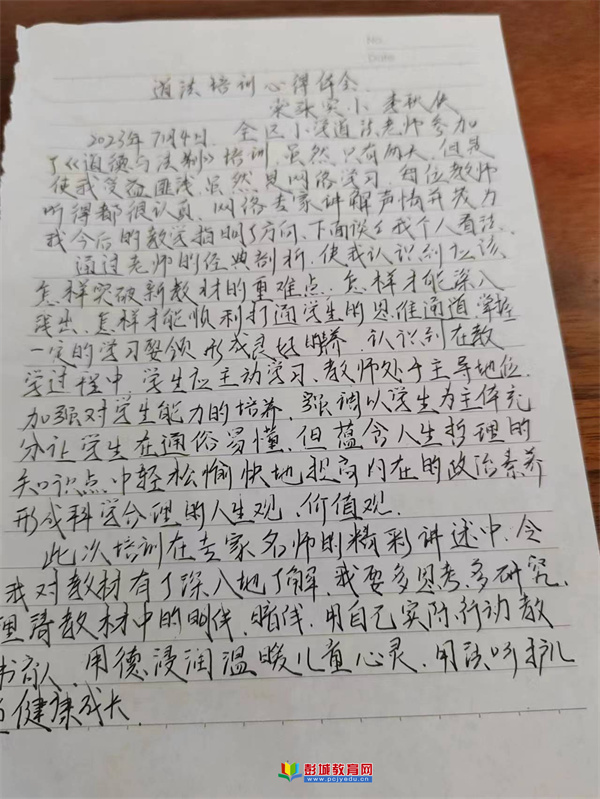 No.
Date
道法培训心得体会
宋张实小 李秋侠
2023年7月4日，全区小学道法老师参加
了《道德与法制》培训，虽然只有两天，但是
使我受益匪浅，虽然是网络学习，每位教师
听得都很认真，网络专家讲解声情并茂为
我今后的教学指明了方向，下面谈了我个人看法。
通过老师的经典剖析，使我认识到应该
怎样突破新教材的重难点，怎样才能深入
浅出，怎样才能顺利打通学生的思维通道，掌握
一定的学习要领，形成良好，认识到在教
学过程中，学生应主动学习、教师处于主导地位。
加强对学生能力的培养，强调以学生为主体充
分让学生在通俗易懂，但蕴含人生哲理的
知识点中轻松愉快地提高内在的政治素养
形成科学合理的人生观、价值观。
此次培训在专家名师的精彩讲述中，令
我对教材有了深入地了解，我要多思考，多研究，
理清教材中的明线，暗线，用自己实际行动教
书育人，用德浸润温暖儿童心灵，用法呵护儿
童健康成长。
彭城教育网
www.pcjyedu.cn